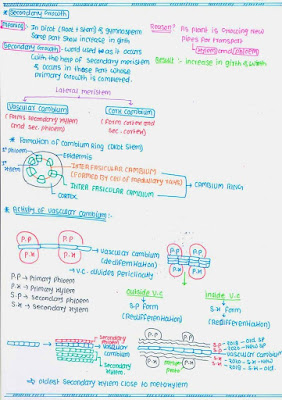 * Secondary Growth
Meaning:- In Dicot (Root + Stem) & gymnosperm
same part show increase in girth
Secondary Growth - word used as it occurs
with the help of secondary meristem
& occurs in those part whose
primary growth is completed.
Reason? As plant is producing new
pipes for transport
xylem and phloem
Result :- increase in girth & width
Lateral meristem
Vascular Cambium
(Forms secondary xylem
and sec. phloem)
Cork Cambium
(Form cortex and
sec. cortex)
* Formation of Cambium Ring (Dicot Stem)
Epidermis
1° phloem
1° xylem
INTRA FASICULAR CAMBIUM
(FORMED BY CELL OF MEDULLARY RAYS)
INTER FASICULAR CAMBIUM
CORTEX
CAMBIUM RING
* Activity of Vascular Cambium :-
P.P P.P
P.X P.X
Vascular Cambium
(Dedifferentiation)
→ V.C. divides periclinally
P.P P.P
P.X P.X
P.P → Primary Phloem
P.X → Primary Xylem
S.P → Secondary Phloem
S.X → Secondary Xylem
Outside V.C
S.P form
(Redifferentiation)
Inside V.C
S.X form
(Redifferentiation)
Secondary phloem
Vascular cambium
Secondary xylem
P.P P.P
S.P
S.P
Vascular cambium
S.X
S.X
P.X P.X
→ Oldest Secondary xylem close to metaxylem